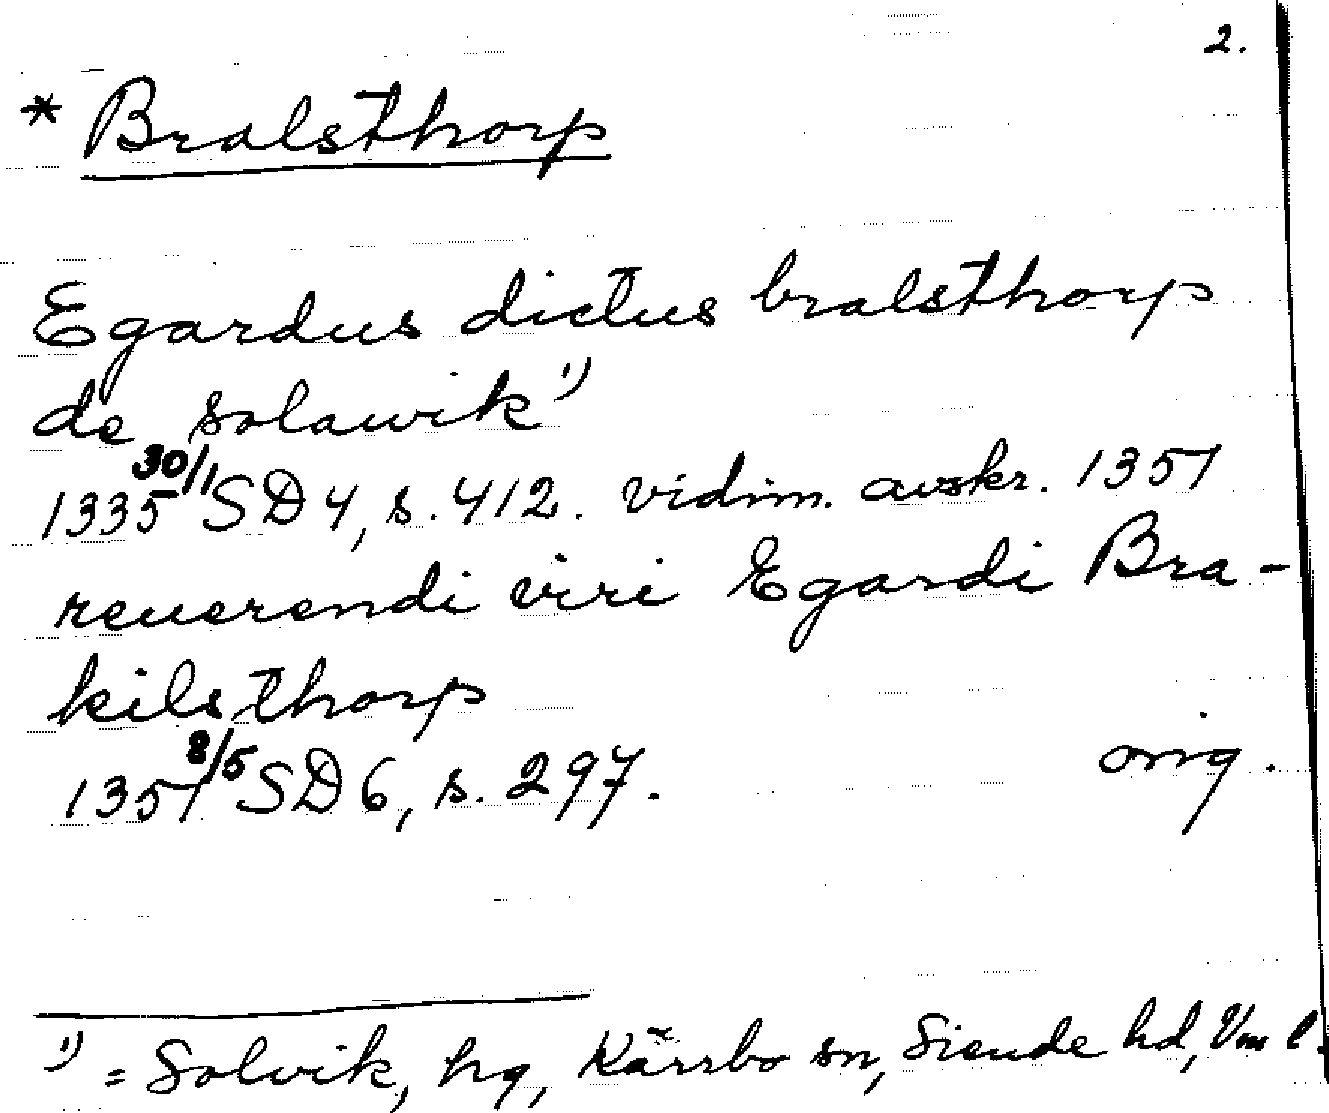 2.
* Bralsthorp
Egardus dictus bralsthorp
de solawik 1)
1335 30/1 SD 4, s. 412. vidim. avskr. 1357
reuerendi viri Egardi Bra-
kilsthorp
1357 8/5 SD 6, s. 297. orig.
1) = Solvik, hg, Kärrbo sn, Siende hd, Vm l.